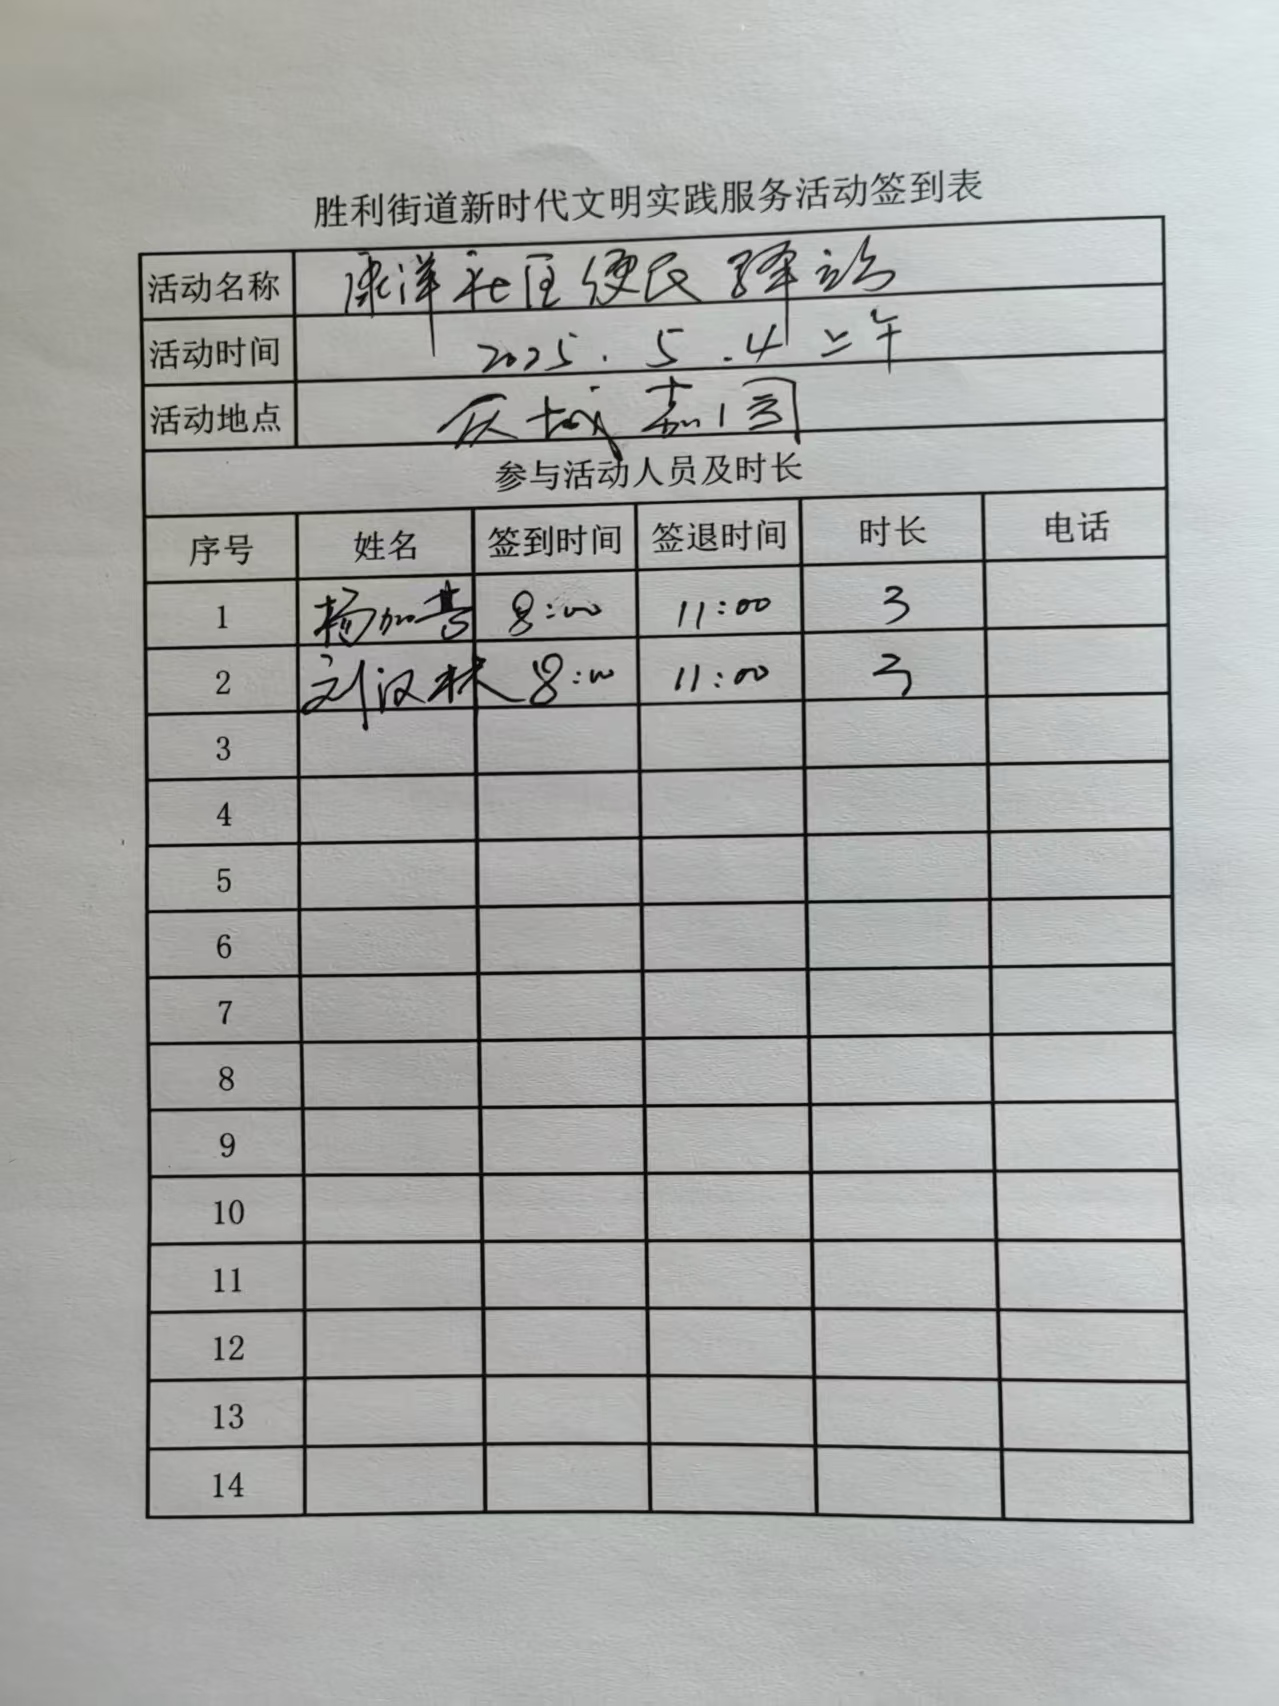 胜利街道新时代文明实践服务活动签到表
活动名称 康洋社区便民驿站
活动时间 2025.5.4上午
活动地点 城嘉
参与活动人员及时长
序号 姓名 签到时间 签退时间 时长 电话
1 杨加 8:00 11:00 3
2 刘汉林 8:00 11:00 3
3
4
5
6
7
8
9
10
11
12
13
14